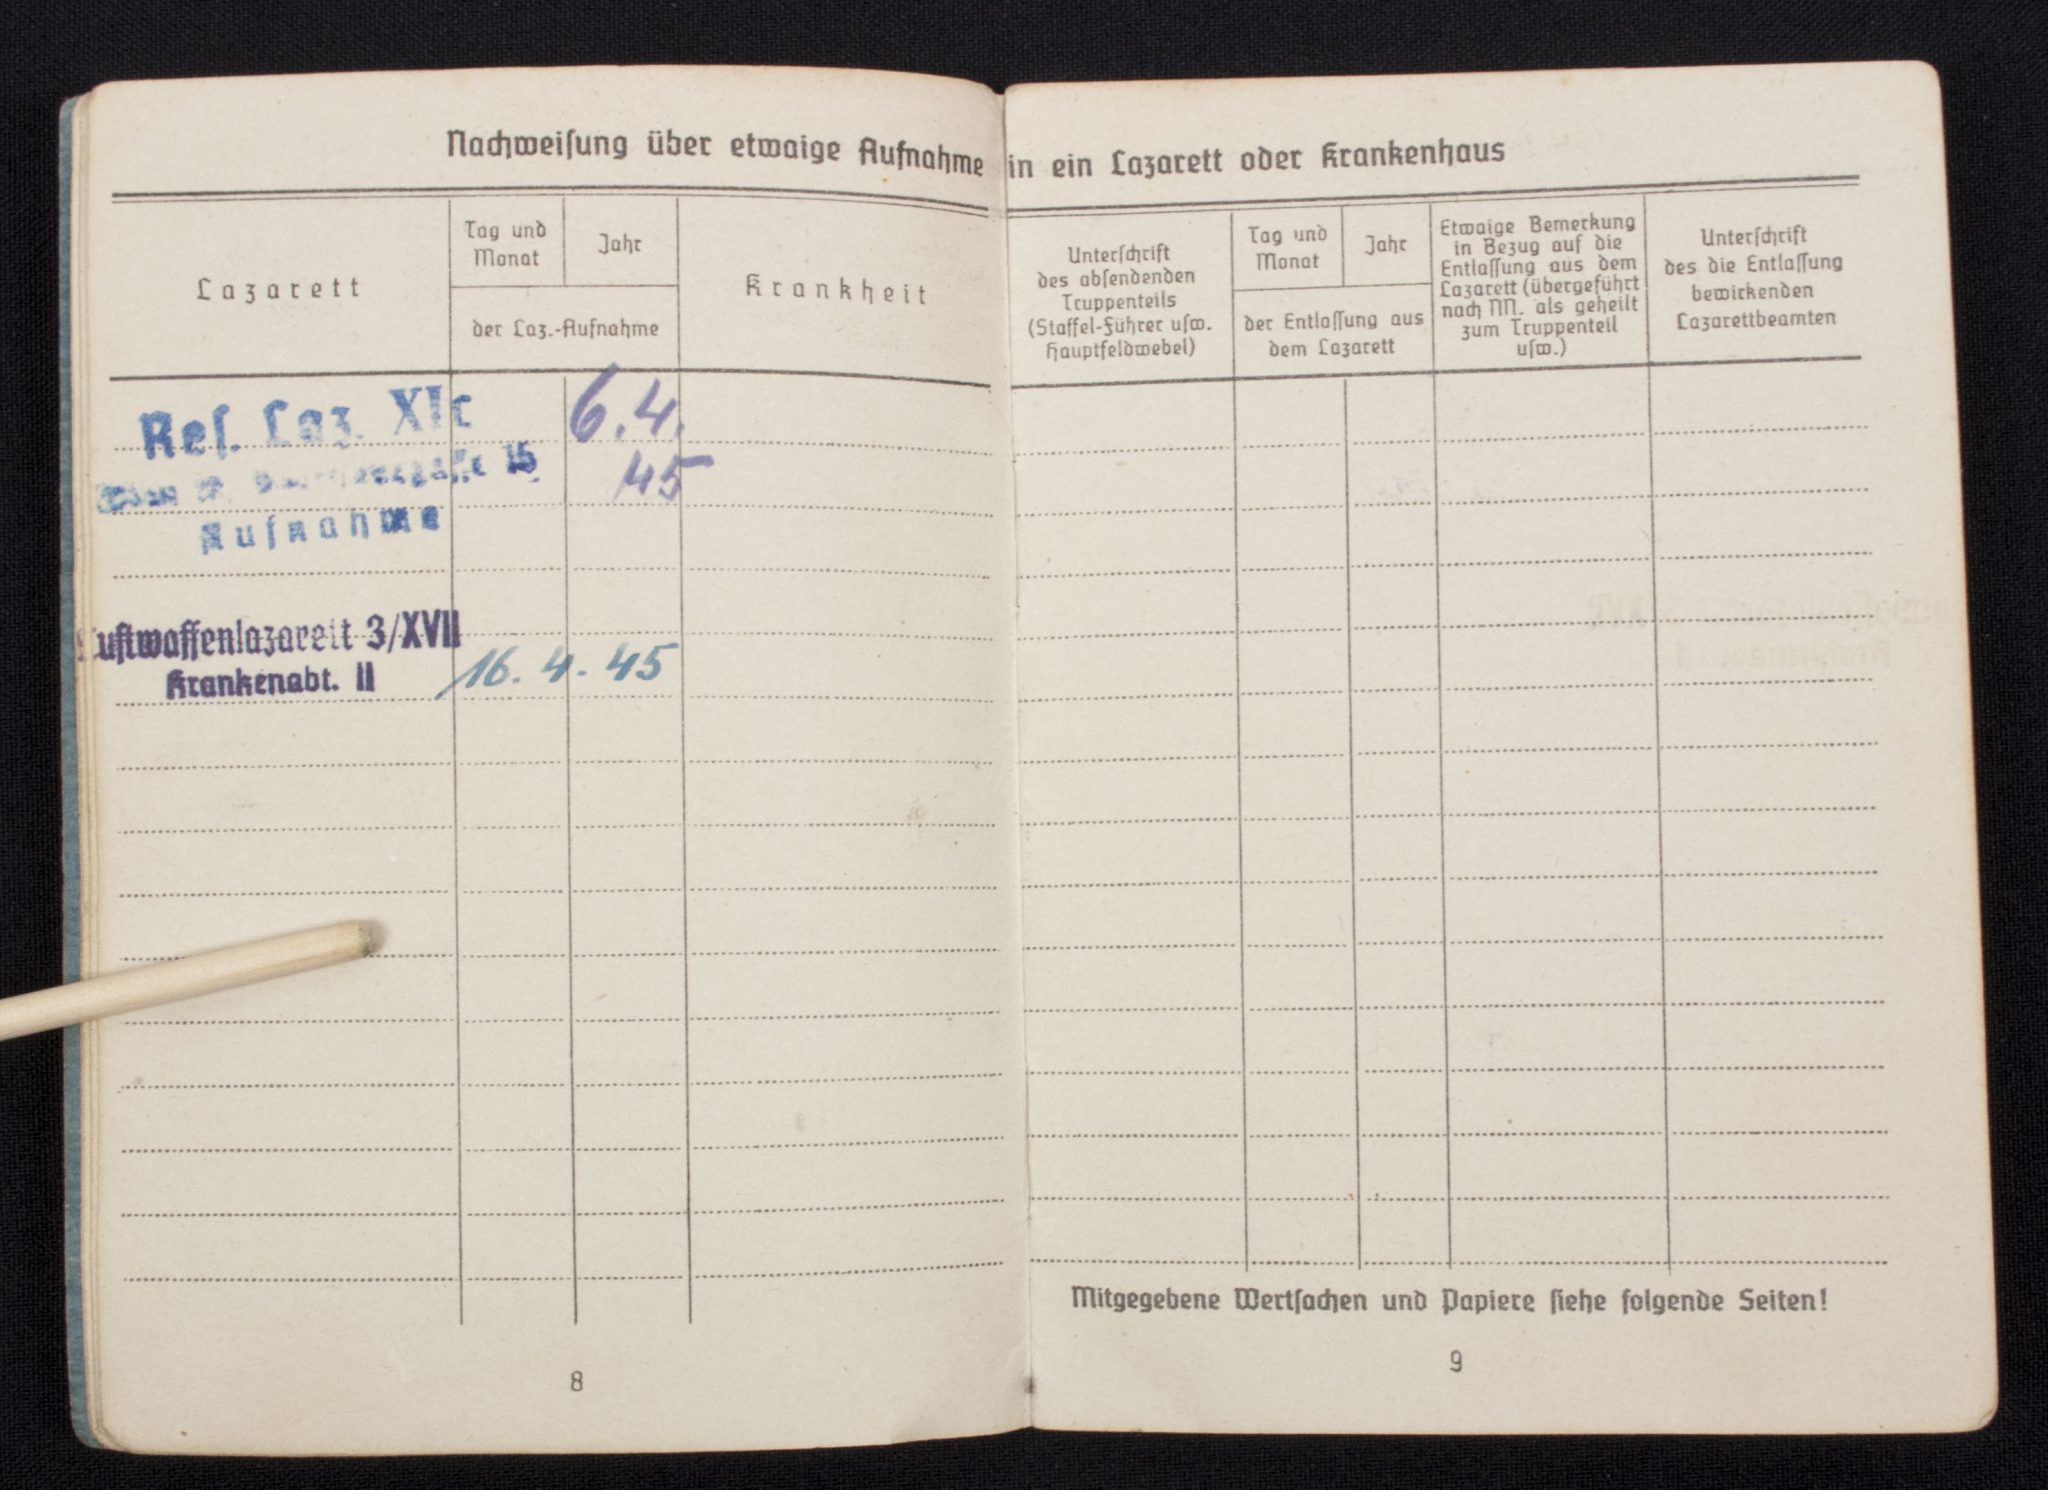 Nachweisung über etwaige Aufnahme in ein Lazarett oder Krankenhaus
Lazarett
Tag und
Monat
Jahr
der Laz.-Aufnahme
Krankheit
Res. Laz. XIc
Aufnahme
6.4.
45
Luftwaffenlazarett 3/XVII
Krankenabt. II
16. 4. 45
8
Unterschrift
des absendenden
Truppenteils
(Staffel-Führer usw.
Hauptfeldwebel)
Tag und
Monat
Jahr
der Entlassung aus
dem Lazarett
Etwaige Bemerkung
in Bezug auf die
Entlassung aus dem
Lazarett (übergeführt
nach NN. als geheilt
zum Truppenteil
usw.)
Unterschrift
des die Entlassung
bewirkenden
Lazarettbeamten
Mitgegebene Wertsachen und Papiere siehe folgende Seiten!
9